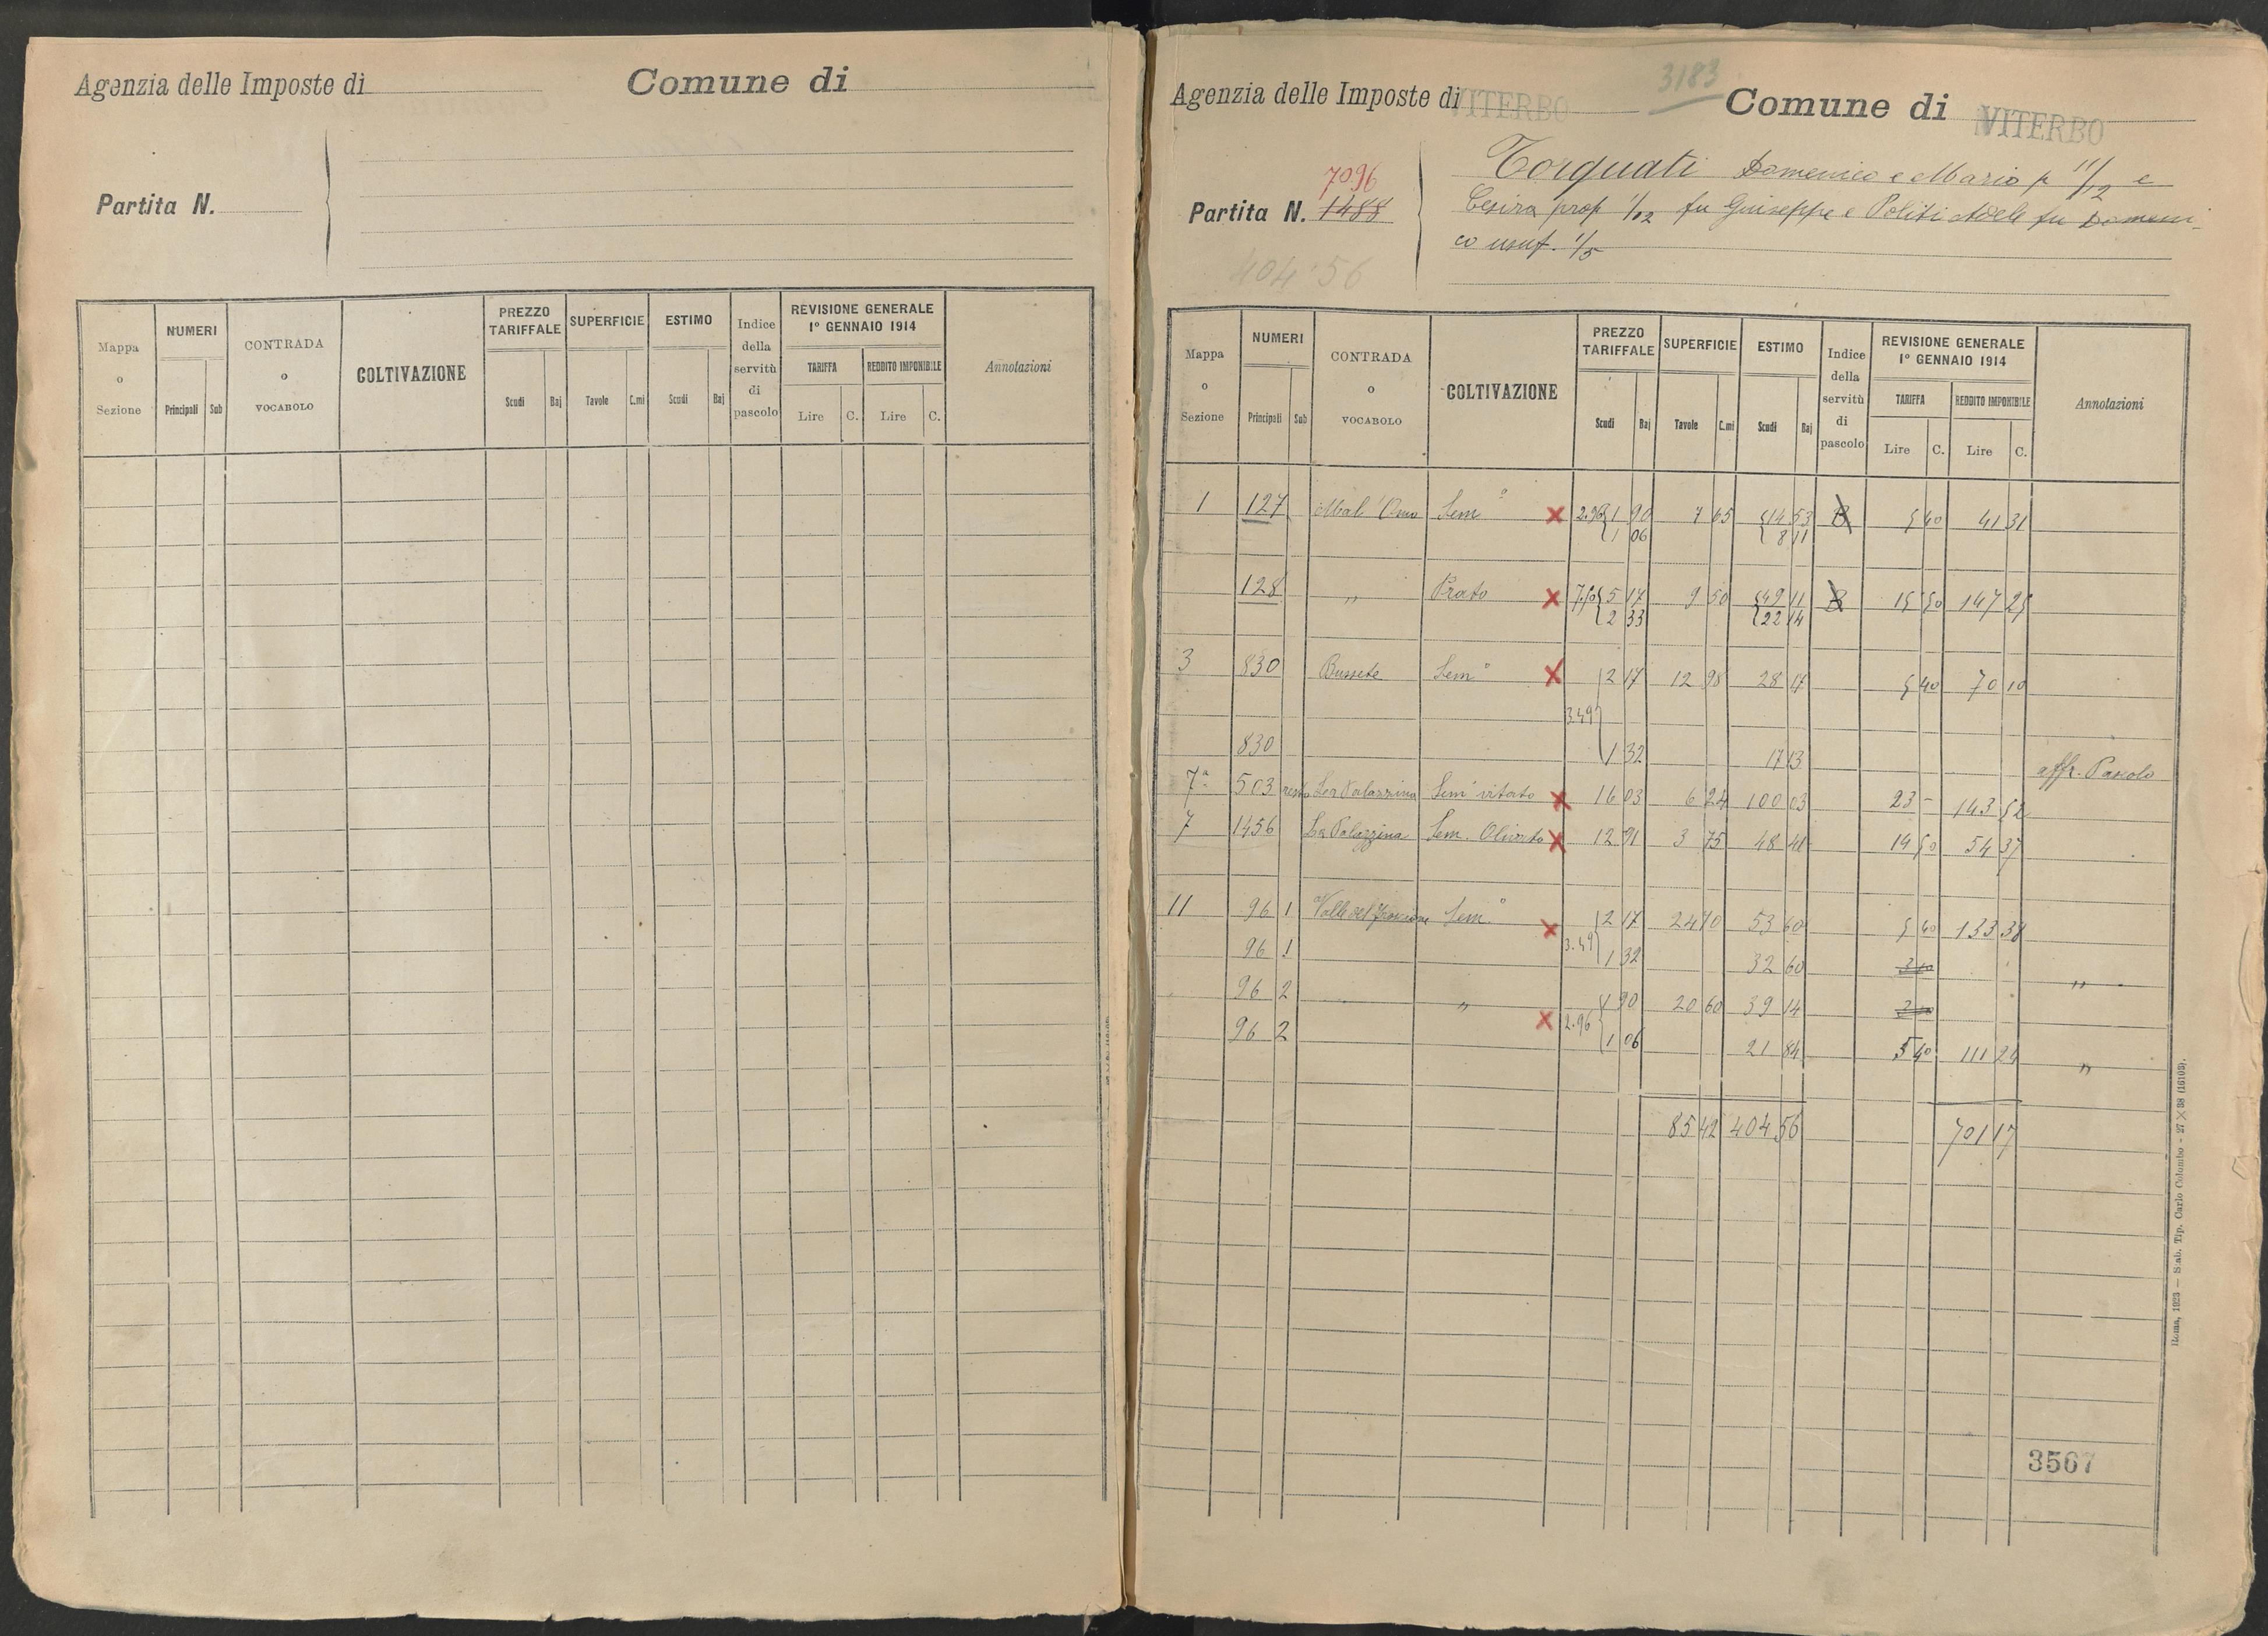 Agenzia delle Imposte di
Comune di
Partita N.
Mappa o Sezione
NUMERI
Principali
Sub
CONTRADA o VOCABOLO
COLTIVAZIONE
PREZZO TARIFFALE
Scudi
Baj
SUPERFICIE
Tavole
C.mi
ESTIMO
Scudi
Baj
Indice della servitù di pascolo
REVISIONE GENERALE
1° GENNAIO 1914
TARIFFA
REDDITO IMPONIBILE
Lire
C.
Lire
C.
Annotazioni
3183
Agenzia delle Imposte di VITERBO
Comune di VITERBO
7096
Partita N. 1488
404.56
Torquati Domenico e Mario p 11/12 e
Cesira prop 1/12 fu Giuseppe e Politi Adele fu Domeni-
co usuf. 1/5
Mappa o Sezione
NUMERI
Principali
Sub
CONTRADA o VOCABOLO
COLTIVAZIONE
PREZZO TARIFFALE
Scudi
Baj
SUPERFICIE
Tavole
C.mi
ESTIMO
Scudi
Baj
Indice della servitù di pascolo
REVISIONE GENERALE
1° GENNAIO 1914
TARIFFA
REDDITO IMPONIBILE
Lire
C.
Lire
C.
Annotazioni
1 127 Mal' Omo Sem° x 2.96 1 90 7 65 14 53 B 5 40 41 31
1 06 8 11
128 " Prato x 7.50 5 17 9 50 49 11 B 15 50 147 25
2 33 22 14
3 830 Bussete Sem° x 2 17 12 98 28 17 5 40 70 10
3.49
830 1 32 17 13 affr. Pascolo
7a 503 resto La Palazzina Sem vitato x 16 03 6 24 100 03 23 - 143 52
7 1456 La Palazzina Sem. Olivato x 12 91 3 75 48 41 14 50 54 37
11 96 1 Valle del Sem.° x 2 17 24 70 53 60 5 40 133 38
96 1 3.49 1 32 32 60 "
96 2 " 1 90 20 60 39 14
96 2 x 2.96 1 06 21 84 5 40 111 24 "
85 42 404 56 701 17
3567
Roma, 1923 — Stab. Tip. Carlo Colombo - 27 X 38 (16103).